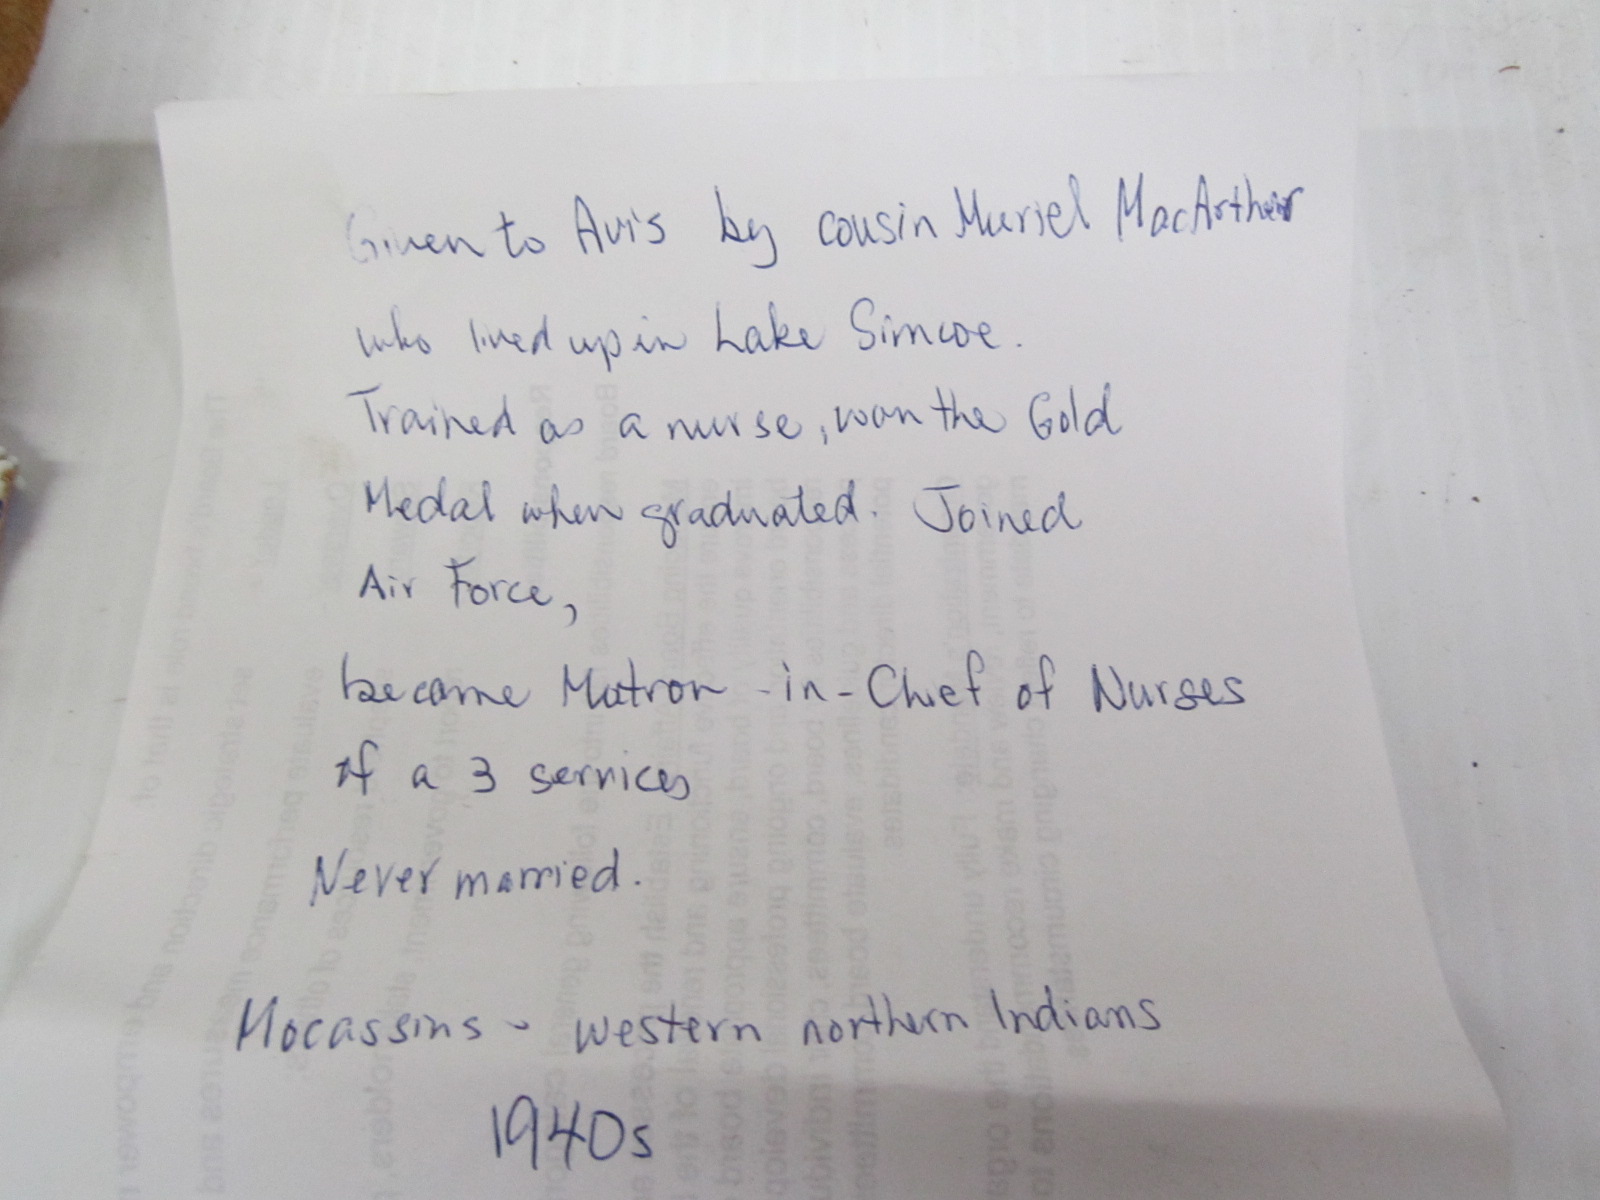 Given to Avis by cousin Muriel MacArthur
who lived up in Lake Simcoe.
Trained as a nurse, won the Gold
Medal when graduated. Joined
Air Force,
became Matron-in-Chief of Nurses
of a 3 services
Never married.
Mocassins - western northern Indians
1940s